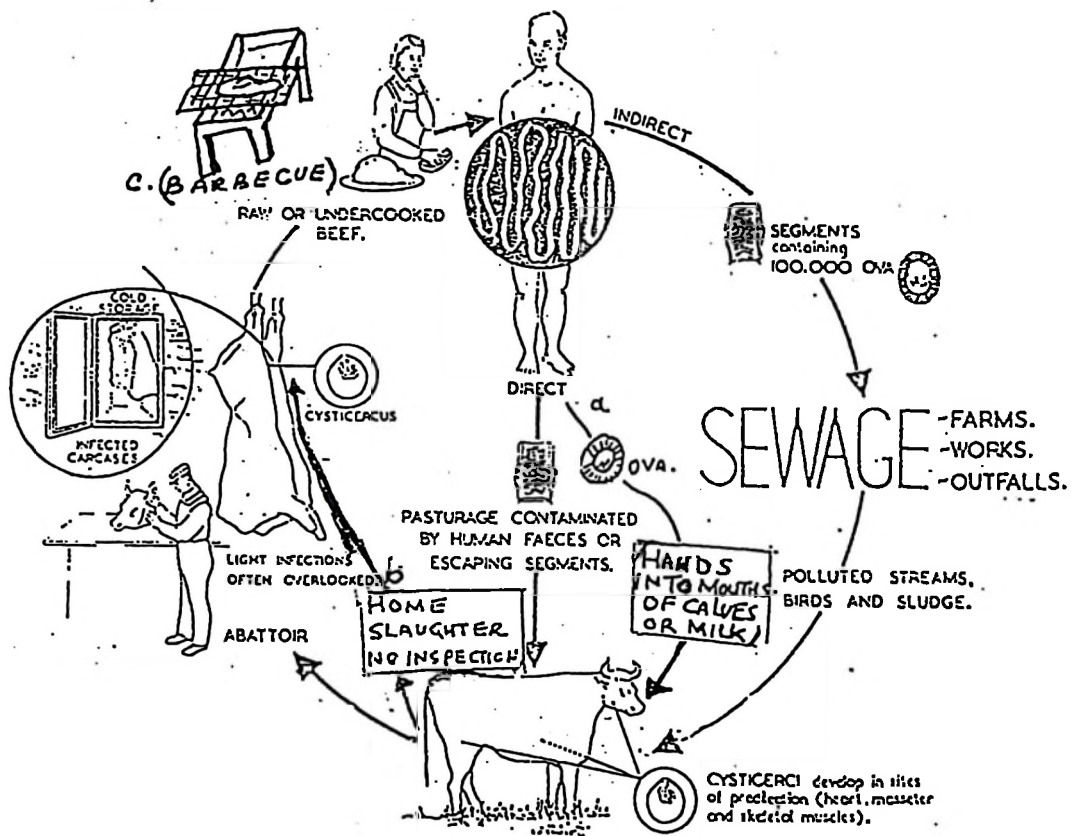 C. (BARBECUE)
RAW OR UNDERCOOKED
BEEF.
INDIRECT
SEGMENTS
containing
100.000 OVA
COLD
STORAGE
INFECTED
CARCASES
CYSTICERCUS
DIRECT
a
OVA.
SEWAGE
-FARMS.
-WORKS.
-OUTFALLS.
PASTURAGE CONTAMINATED
BY HUMAN FAECES OR
ESCAPING SEGMENTS.
HANDS
INTO MOUTHS
OF CALVES
OR MILK)
POLLUTED STREAMS,
BIRDS AND SLUDGE.
LIGHT INFECTIONS
OFTEN OVERLOOKED
b
HOME
SLAUGHTER
NO INSPECTION
ABATTOIR
CYSTICERCI develop in sites
of predilection (heart, masseter
and skeletal muscles).